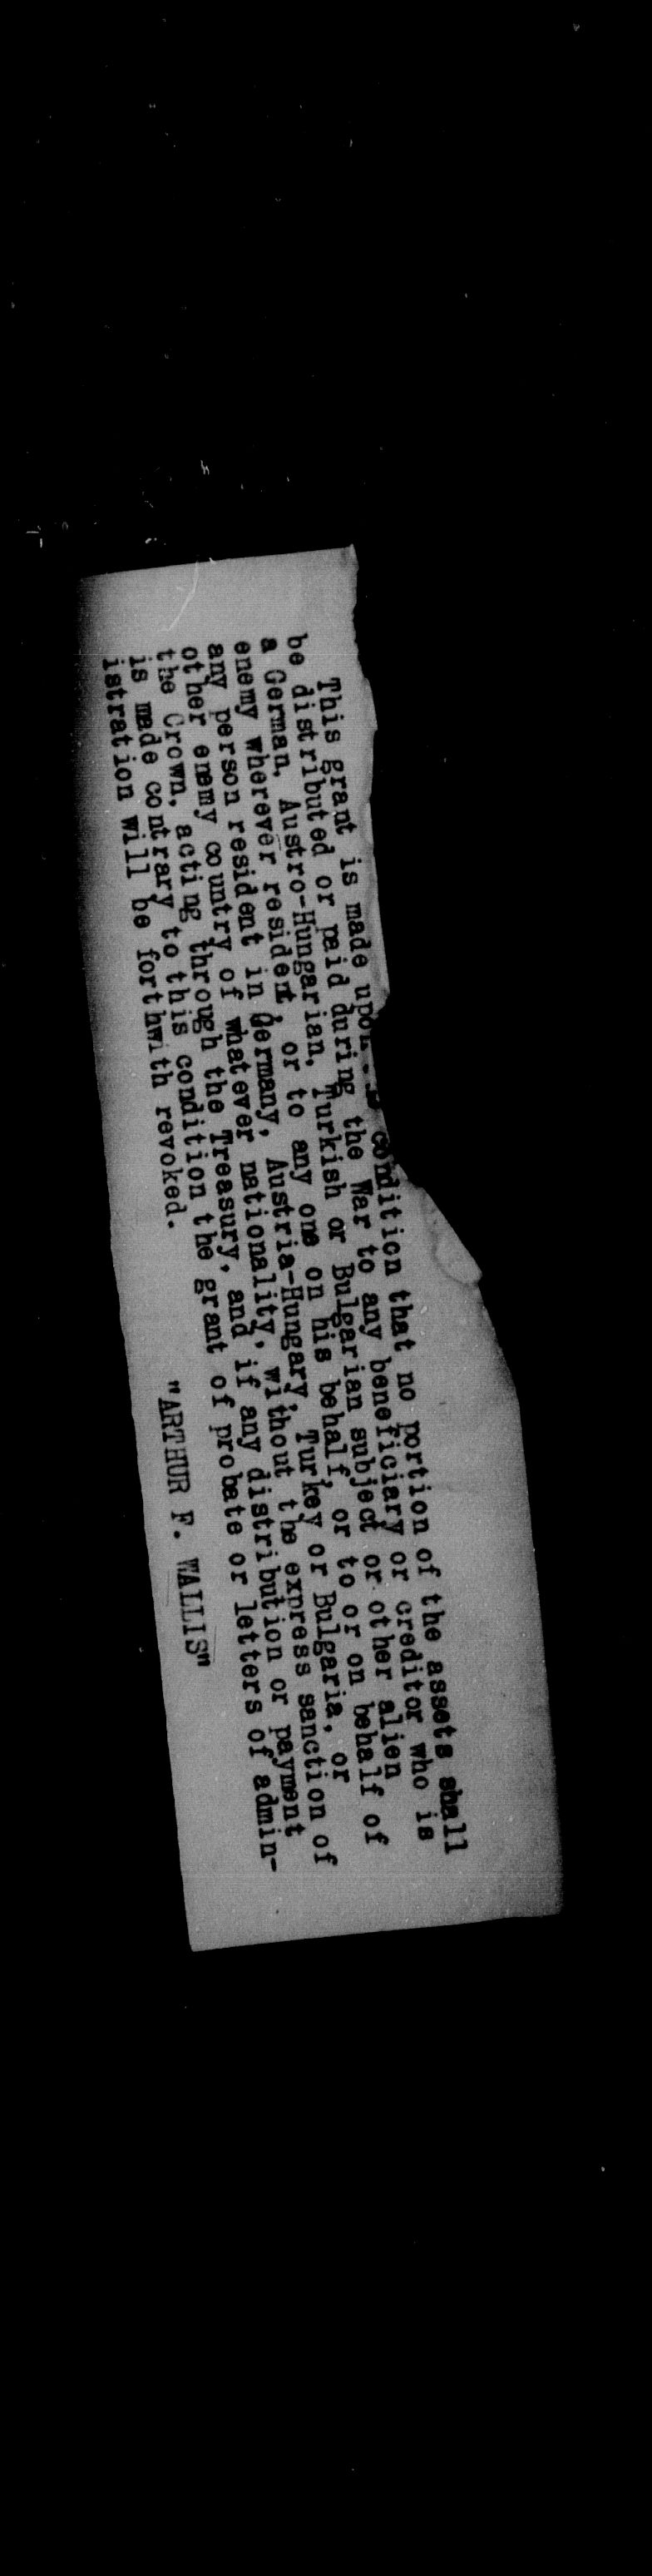 This grant is made upon condition that no portion of the assets shall
be distributed or paid during the War to any beneficiary or creditor who is
a German, Austro-Hungarian, Turkish or Bulgarian subject or other alien
enemy wherever resident, or to any one on his behalf, or to or on behalf of
any person resident in Germany, Austria-Hungary, Turkey or Bulgaria, or
other enemy country of whatever nationality, without the express sanction of
the Crown, acting through the Treasury, and if any distribution or payment
is made contrary to this condition the grant of probate or letters of admin-
istration will be forthwith revoked.
"ARTHUR F. WALLIS"